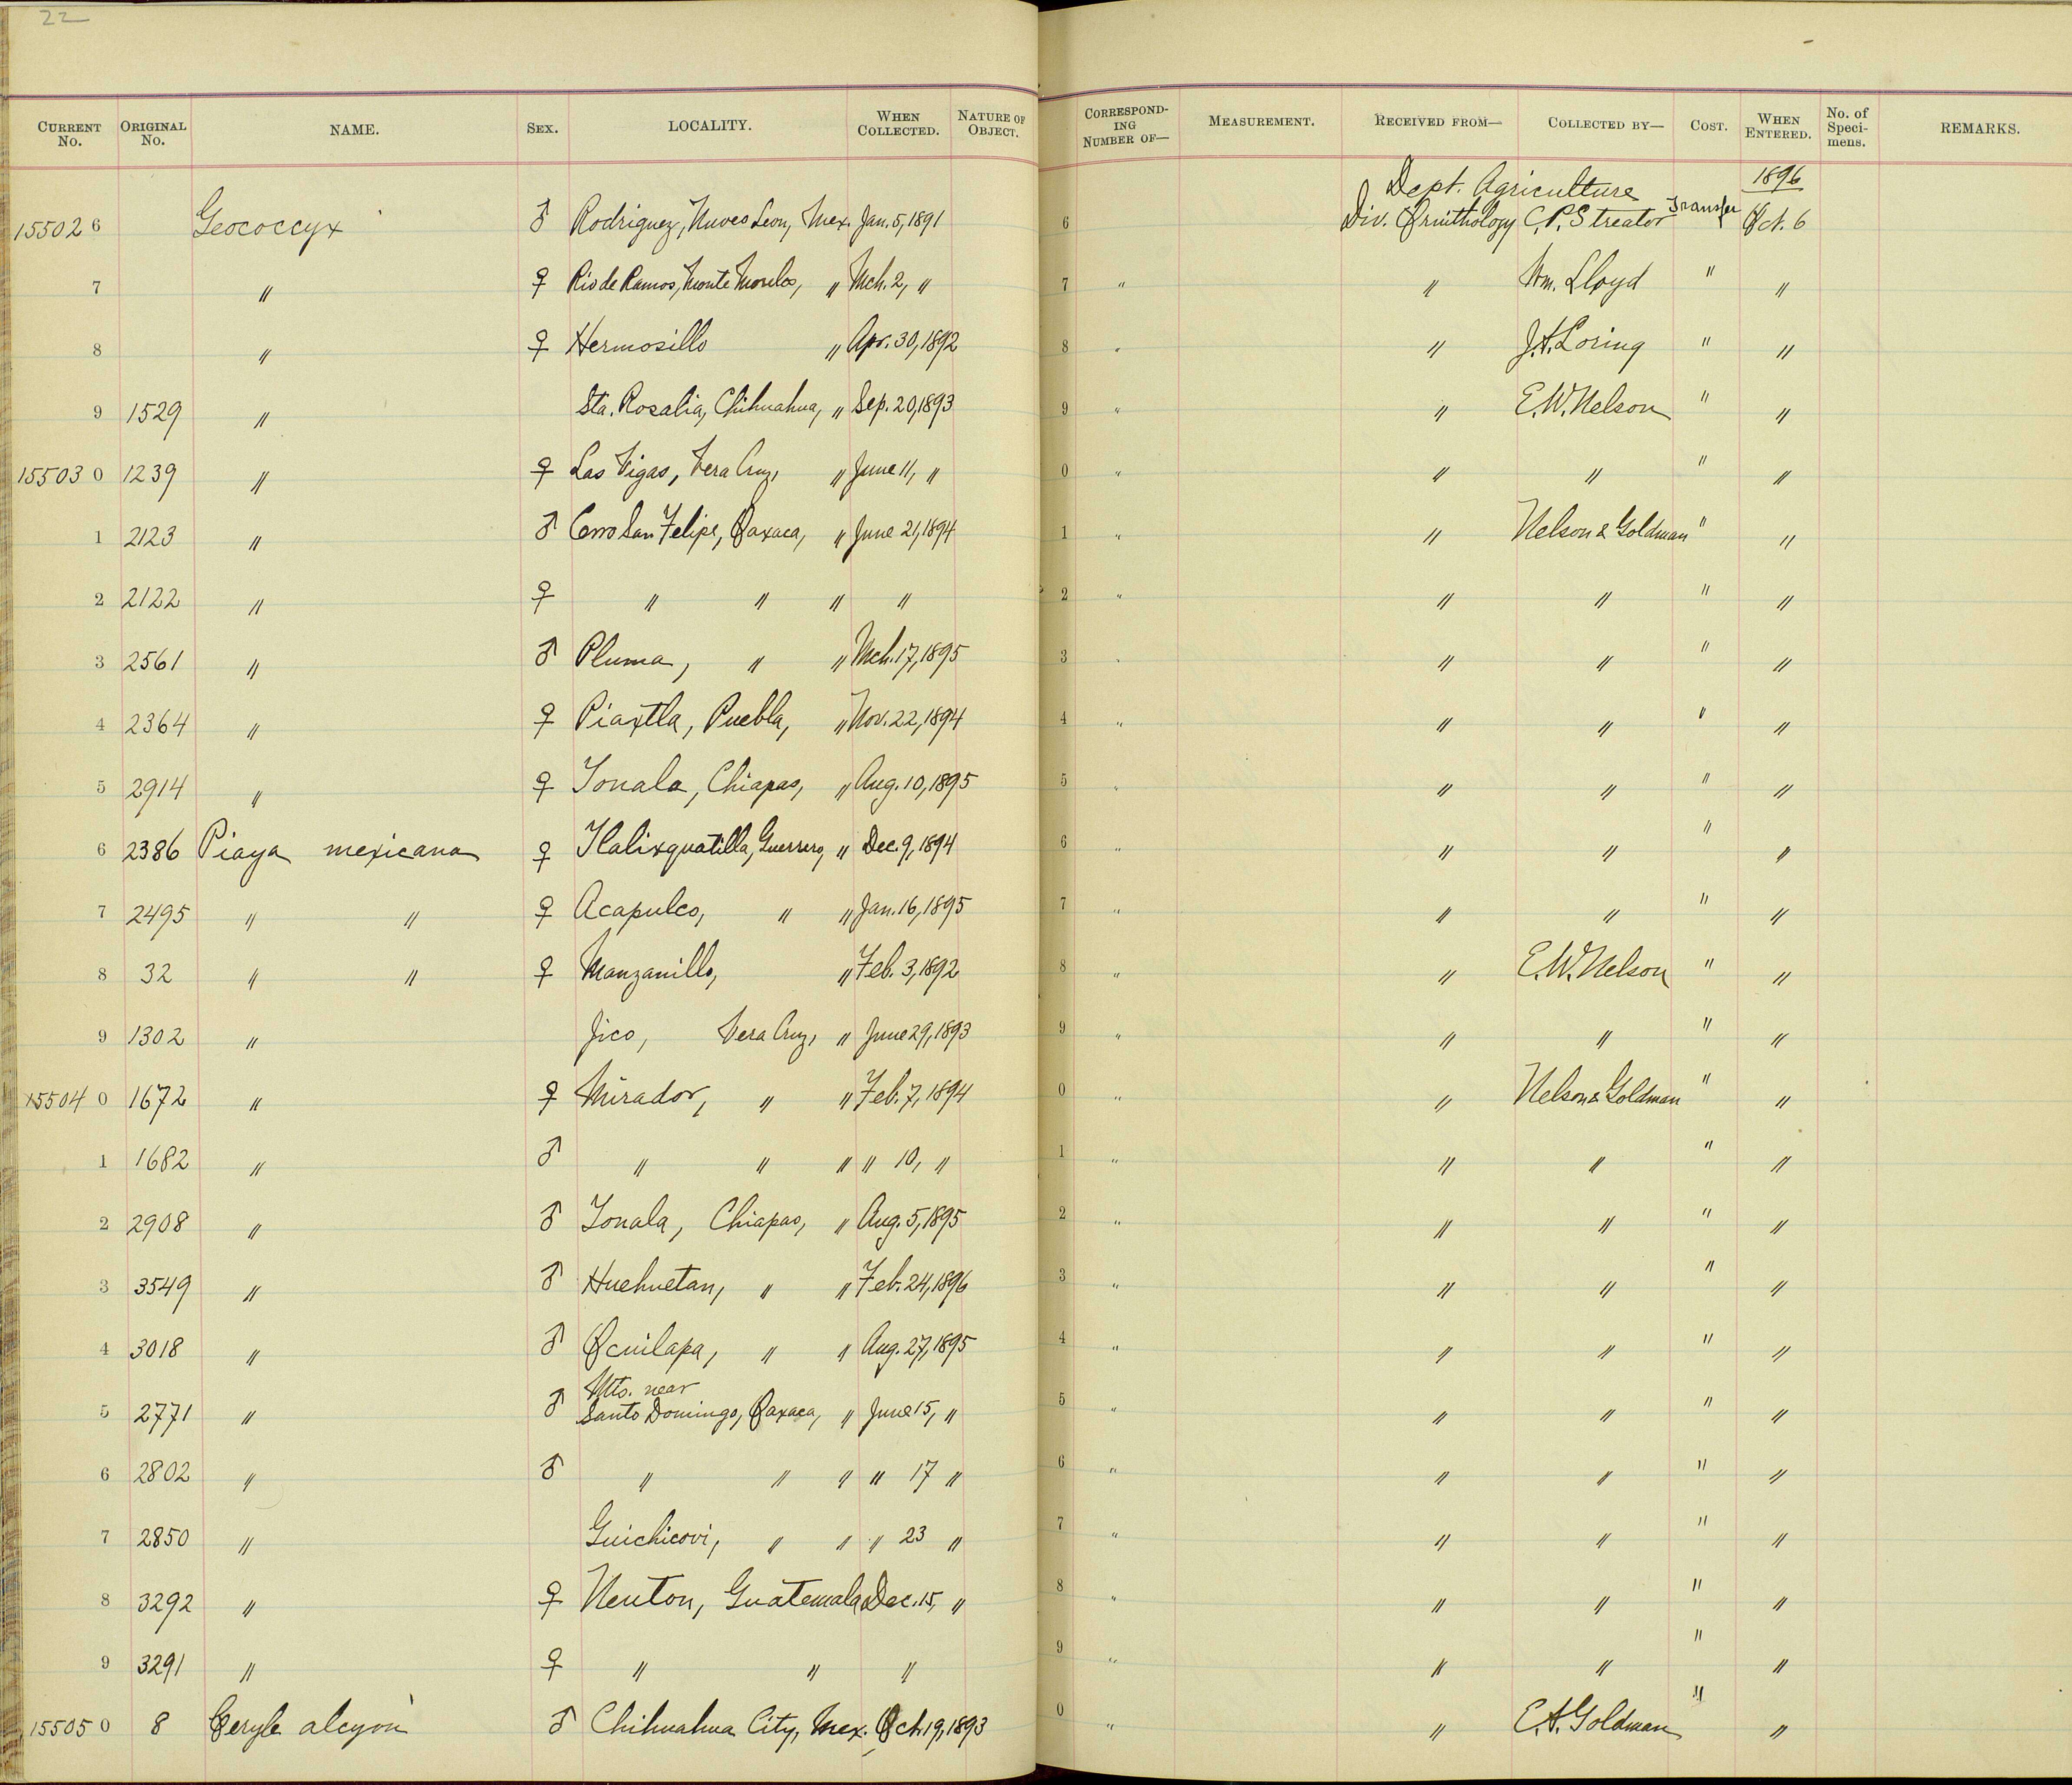 22
CURRENT No. ORIGINAL No. NAME. SEX. LOCALITY. WHEN COLLECTED. NATURE OF OBJECT. CORRESPONDING NUMBER OF— MEASUREMENT. RECEIVED FROM— COLLECTED BY— COST. WHEN ENTERED. No. of Specimens. REMARKS.
Dept. Agriculture 1896
15502 6 Geococcyx ♂ Rodriguez, Nuves Leon, Mex. Jan. 5, 1891 6 Div. Ornithology C. P. Streator Transfer Oct. 6
7 " ♀ Rio de Ramos, Monte Morelos, " Mch. 2, " 7 " " Wm. Lloyd " "
8 " ♀ Hermosillo " Apr. 30, 1892 8 " " J. A. Loring " "
9 1529 " Sta. Rosalia, Chihuahua, " Sep. 20, 1893 9 " " E. W. Nelson " "
15503 0 1239 " ♀ Las Vigas, Vera Cruz, " June 11, " 0 " " " " "
1 2123 " ♂ Cerro San Felipe, Oaxaca, " June 21, 1894 1 " " Nelson & Goldman " "
2 2122 " ♀ " " " " 2 " " " " "
3 2561 " ♂ Pluma, " " Mch. 17, 1895 3 " " " " "
4 2364 " ♀ Piaxtla, Puebla, " Nov. 22, 1894 4 " " " " "
5 2914 " ♀ Tonala, Chiapas, " Aug. 10, 1895 5 " " " " "
6 2386 Piaya mexicana ♀ Tlalixquatilla, Guerrero, " Dec. 9, 1894 6 " " " " "
7 2495 " " ♀ Acapulco, " " Jan. 16, 1895 7 " " " " "
8 32 " " ♀ Manzanillo, " Feb. 3, 1892 8 " " E. W. Nelson " "
9 1302 " Jico, Vera Cruz, " June 29, 1893 9 " " " " "
15504 0 1672 " ♀ Mirador, " " Feb. 7, 1894 0 " " Nelson & Goldman " "
1 1682 " ♂ " " " " 10, " 1 " " " " "
2 2908 " ♂ Tonala, Chiapas, " Aug. 5, 1895 2 " " " " "
3 3549 " ♂ Huehuetan, " " Feb. 24, 1896 3 " " " " "
4 3018 " ♂ Ocuilapa, " " Aug. 27, 1895 4 " " " " "
Mts. near
5 2771 " ♂ Santo Domingo, Oaxaca, " June 15, " 5 " " " " "
6 2802 " ♂ " " " " 17 " 6 " " " " "
7 2850 " Guichicovi, " " " 23 " 7 " " " " "
8 3292 " ♀ Nenton, Guatemala Dec. 15, " 8 " " " " "
9 3291 " ♀ " " " 9 " " " " "
15505 0 8 Ceryle alcyon ♂ Chihuahua City, Mex. Oct. 19, 1893 0 " " E. A. Goldman " "